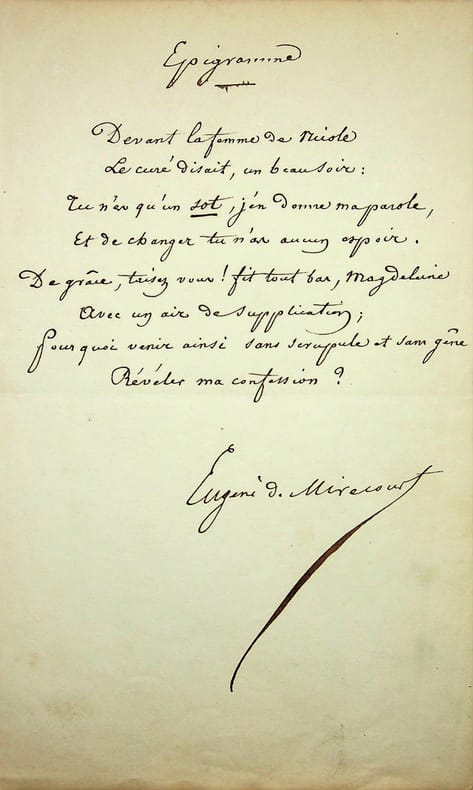 Epigramme
Devant la femme de Nicole
Le curé disait, un beau soir :
Tu n'es qu'un sot, j'en donne ma parole,
Et de changer tu n'as aucun espoir.
De grâce, taisez vous ! fit tout bas, Magdeleine
Avec un air de supplication ;
Pourquoi venir ainsi sans scrupule et sans gêne
Révéler ma confession ?
Eugène de Mirecourt